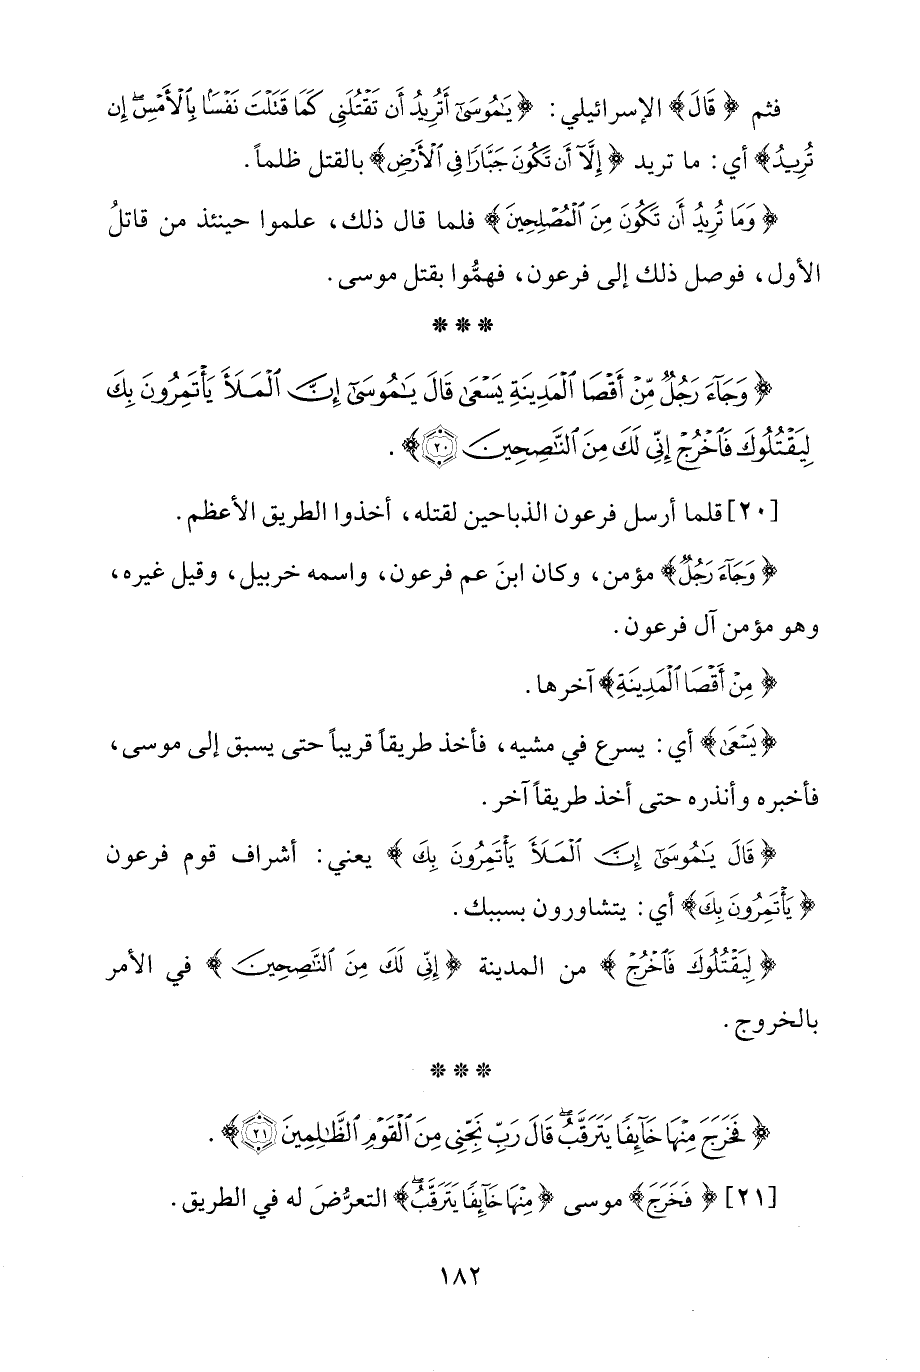 فثم ﴿ قَالَ﴾ الإسرائيلي: ﴿ يَٰمُوسَىٰٓ أَتُرِيدُ أَن تَقْتُلَنِى كَمَا قَتَلْتَ نَفْسًۢا بِٱلْأَمْسِ ۖ إِن
تُرِيدُ﴾ أي: ما تريد ﴿ إِلَّآ أَن تَكُونَ جَبَّارًا فِى ٱلْأَرْضِ﴾ بالقتل ظلماً.
﴿ وَمَا تُرِيدُ أَن تَكُونَ مِنَ ٱلْمُصْلِحِينَ﴾ فلما قال ذلك، علموا حينئذ من قاتلُ
الأول، فوصل ذلك إلى فرعون، فهمُّوا بقتل موسى.
* * *
﴿ وَجَآءَ رَجُلٌ مِّنْ أَقْصَا ٱلْمَدِينَةِ يَسْعَىٰ قَالَ يَٰمُوسَىٰٓ إِنَّ ٱلْمَلَأَ يَأْتَمِرُونَ بِكَ
لِيَقْتُلُوكَ فَٱخْرُجْ إِنِّى لَكَ مِنَ ٱلنَّٰصِحِينَ ٢٠﴾.
[٢٠] فلما أرسل فرعون الذباحين لقتله، أخذوا الطريق الأعظم.
﴿ وَجَآءَ رَجُلٌ﴾ مؤمن، وكان ابنَ عم فرعون، واسمه خربيل، وقيل غيره،
وهو مؤمن آل فرعون.
﴿ مِنْ أَقْصَا ٱلْمَدِينَةِ﴾ آخرها.
﴿يَسْعَىٰ﴾ أي: يسرع في مشيه، فأخذ طريقاً قريباً حتى يسبق إلى موسى،
فأخبره وأنذره حتى أخذ طريقاً آخر.
﴿قَالَ يَٰمُوسَىٰٓ إِنَّ ٱلْمَلَأَ يَأْتَمِرُونَ بِكَ ﴾ يعني: أشراف قوم فرعون
﴿ يَأْتَمِرُونَ بِكَ﴾ أي: يتشاورون بسببك.
﴿ لِيَقْتُلُوكَ فَٱخْرُجْ ﴾ من المدينة ﴿ إِنِّى لَكَ مِنَ ٱلنَّٰصِحِينَ ﴾ في الأمر
بالخروج.
* * *
﴿ فَخَرَجَ مِنْهَا خَآئِفًا يَتَرَقَّبُ ۖ قَالَ رَبِّ نَجِّنِى مِنَ ٱلْقَوْمِ ٱلظَّٰلِمِينَ ٢١﴾.
[٢١] ﴿ فَخَرَجَ﴾ موسى ﴿ مِنْهَا خَآئِفًا يَتَرَقَّبُ ۖ﴾ التعرُّضَ له في الطريق.
١٨٢